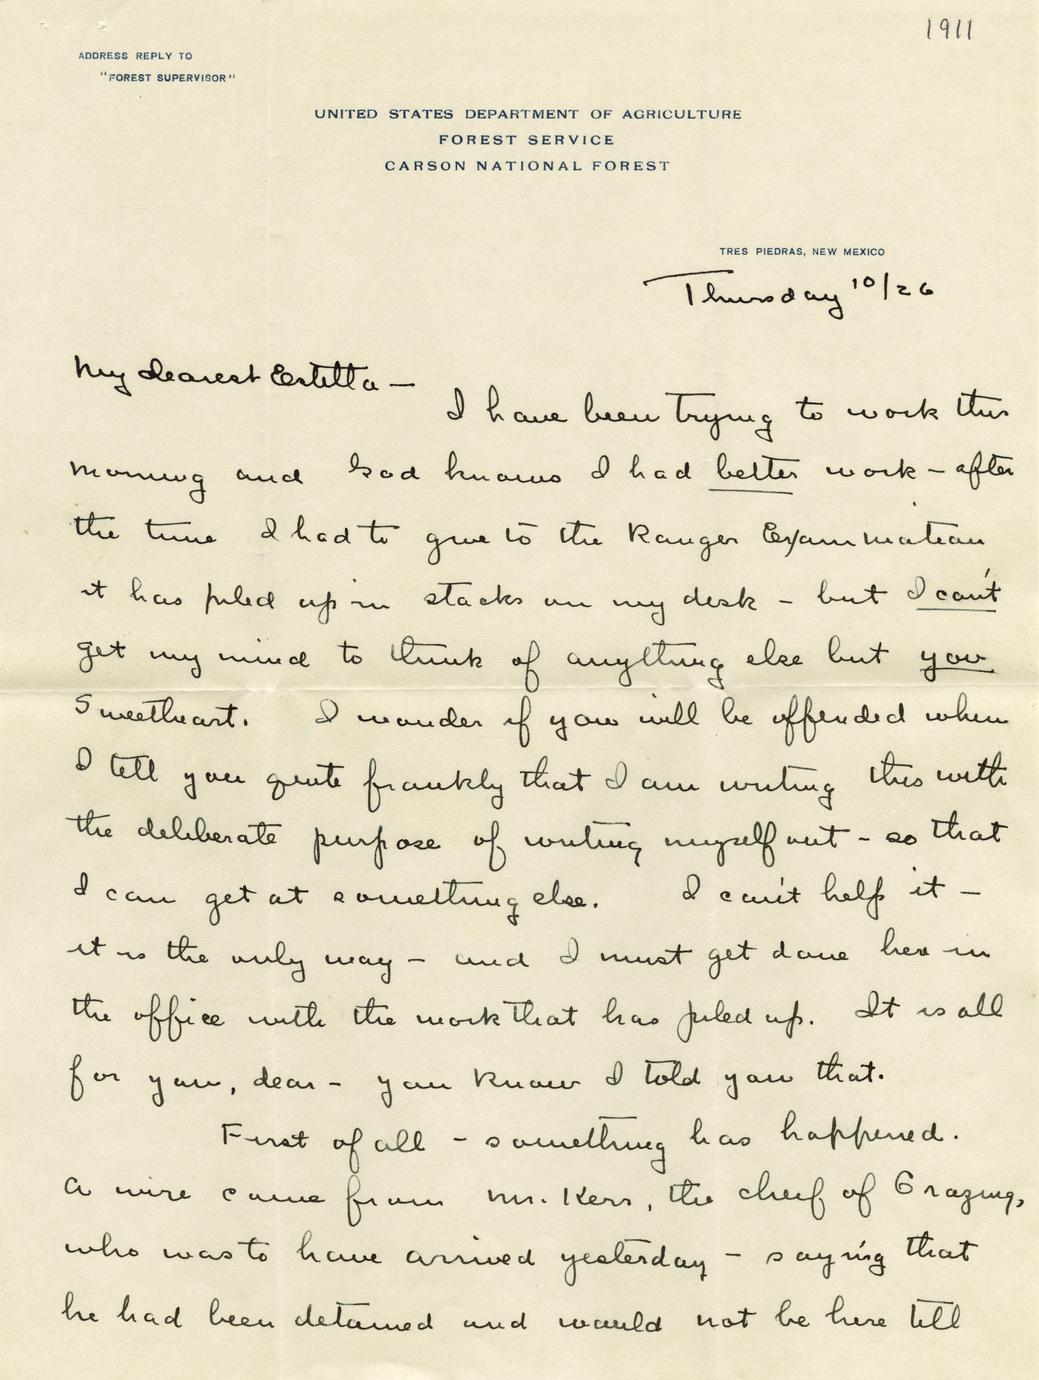 1911
ADDRESS REPLY TO
"FOREST SUPERVISOR"
UNITED STATES DEPARTMENT OF AGRICULTURE
FOREST SERVICE
CARSON NATIONAL FOREST
TRES PIEDRAS, NEW MEXICO
Thursday 10/26
My dearest Estella —
I have been trying to work this
morning and God knows I had better work – after
the time I had to give to the Ranger Examination
it has piled up in stacks on my desk – but I can't
get my mind to think of anything else but you
Sweetheart. I wonder if you will be offended when
I tell you quite frankly that I am writing this with
the deliberate purpose of writing myself out – so that
I can get at something else. I can't help it –
it is the only way – and I must get done here in
the office with the work that has piled up. It is all
for you, dear – you know I told you that.
First of all – something has happened.
A wire came from Mr. Kerr, the cheif of Grazing,
who was to have arrived yesterday – saying that
he had been detained and would not be here till